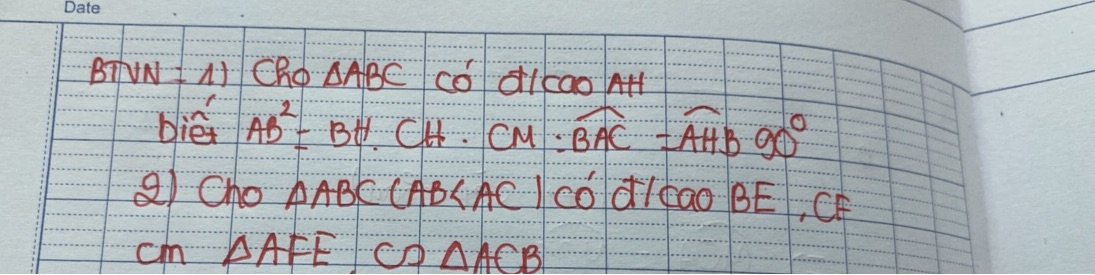 Date
BTVN: 1) Cho ΔABC có đ/cao AH
biết AB² = BH. CH. CM: \widehat{BAC} = \widehat{AHB} 90°
2) Cho ΔABC (AB<AC) có đ/cao BE, CF
cm ΔAFE ∽ ΔACB